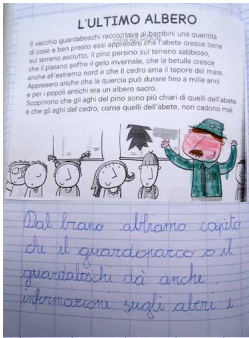 L'ULTIMO ALBERO
Il vecchio guardaboschi raccontava ai bambini una quantità
di cose e ben presto essi appresero che l'abete cresce bene
sul terreno asciutto, il pino persino sul terreno sabbioso,
che il platano soffre il gelo invernale, che la betulla cresce
anche all'estremo nord e che il cedro ama il tepore del mare.
Appresero anche che la quercia può durare fino a mille anni
e per i popoli antichi era un albero sacro.
Scoprirono che gli aghi del pino sono più chiari di quelli dell'abete
e che gli aghi del cedro, come quelli dell'abete, non cadono mai.
Dal brano abbiamo capito
che il guardaparco o il
guardaboschi dà anche
informazioni sugli alberi e